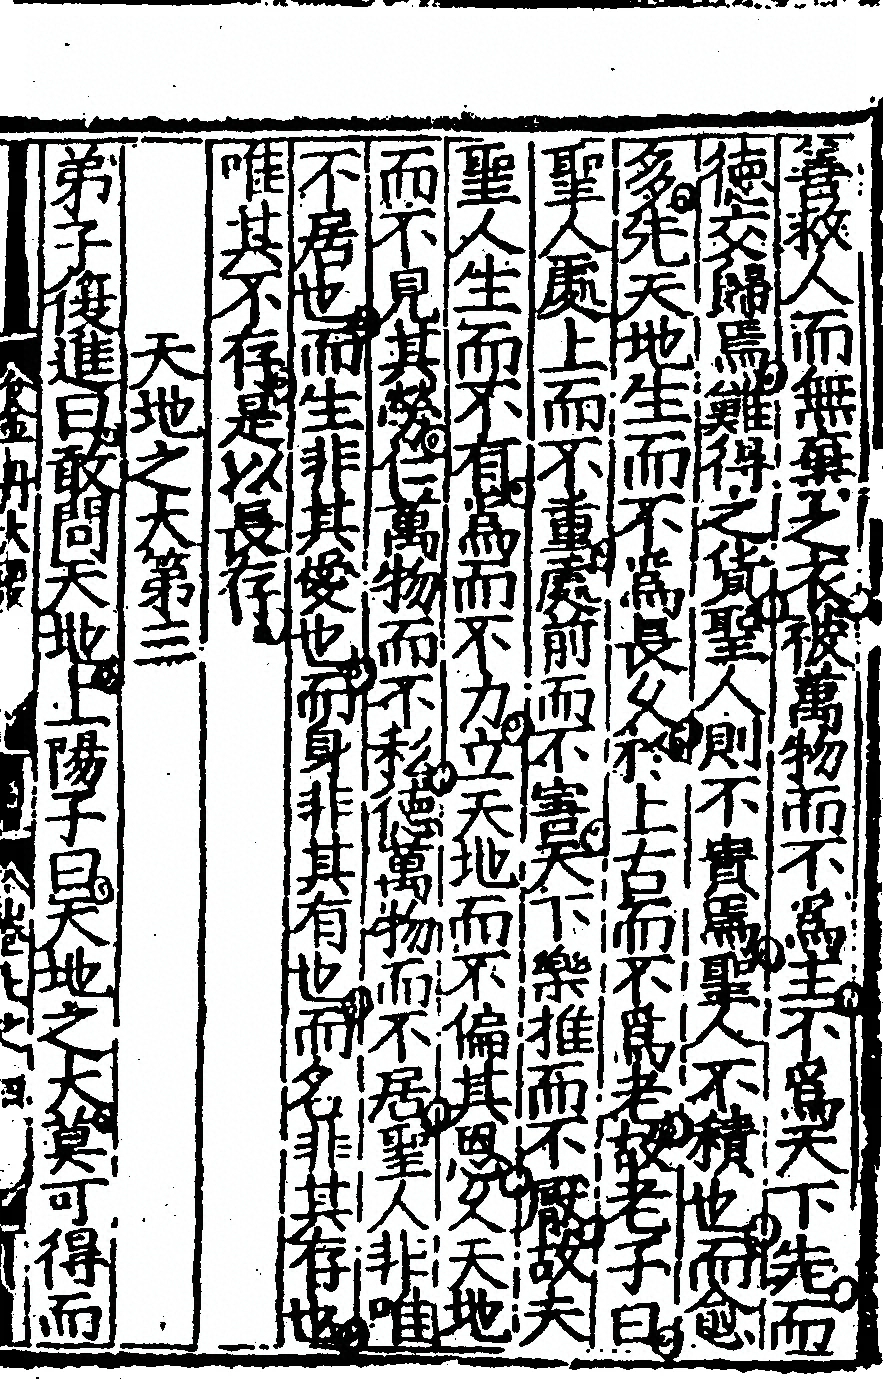 善救人而無棄之衣被萬物而不爲主不爲天下先而
德交歸焉難得之貨聖人則不貴焉聖人不積也而愈
多先天地生而不爲長久於上古而不爲老故老子曰
聖人處上而不重處前而不害天下樂推而不厭故夫
聖人生而不有爲而不力立天地而不偏其恩久天地
而不見其勞仁萬物而不私德萬物而不居聖人非唯
不居也而生非其愛也而身非其有也而名非其存也
唯其不存是以長存
天地之大第三
弟子復進曰敢問天地上陽子曰天地之大莫可得而
金丹大